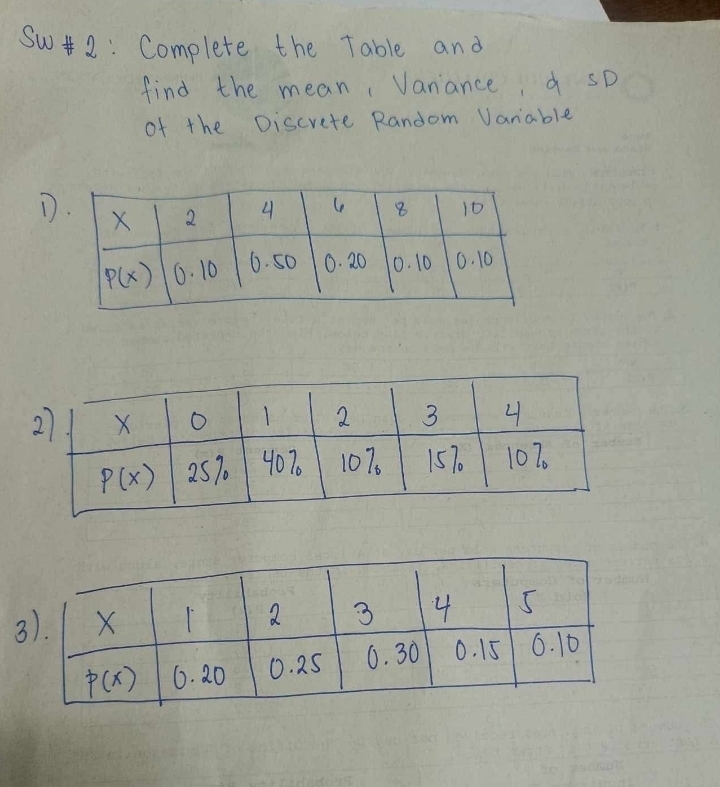 SW # 2 : Complete the Table and
find the mean, Variance, & SD
of the Discrete Random Variable
1). X 2 4 6 8 10
P(x) 0.10 0.50 0.20 0.10 0.10
2). X 0 1 2 3 4
P(x) 25% 40% 10% 15% 10%
3). X 1 2 3 4 5
P(x) 0.20 0.25 0.30 0.15 0.10